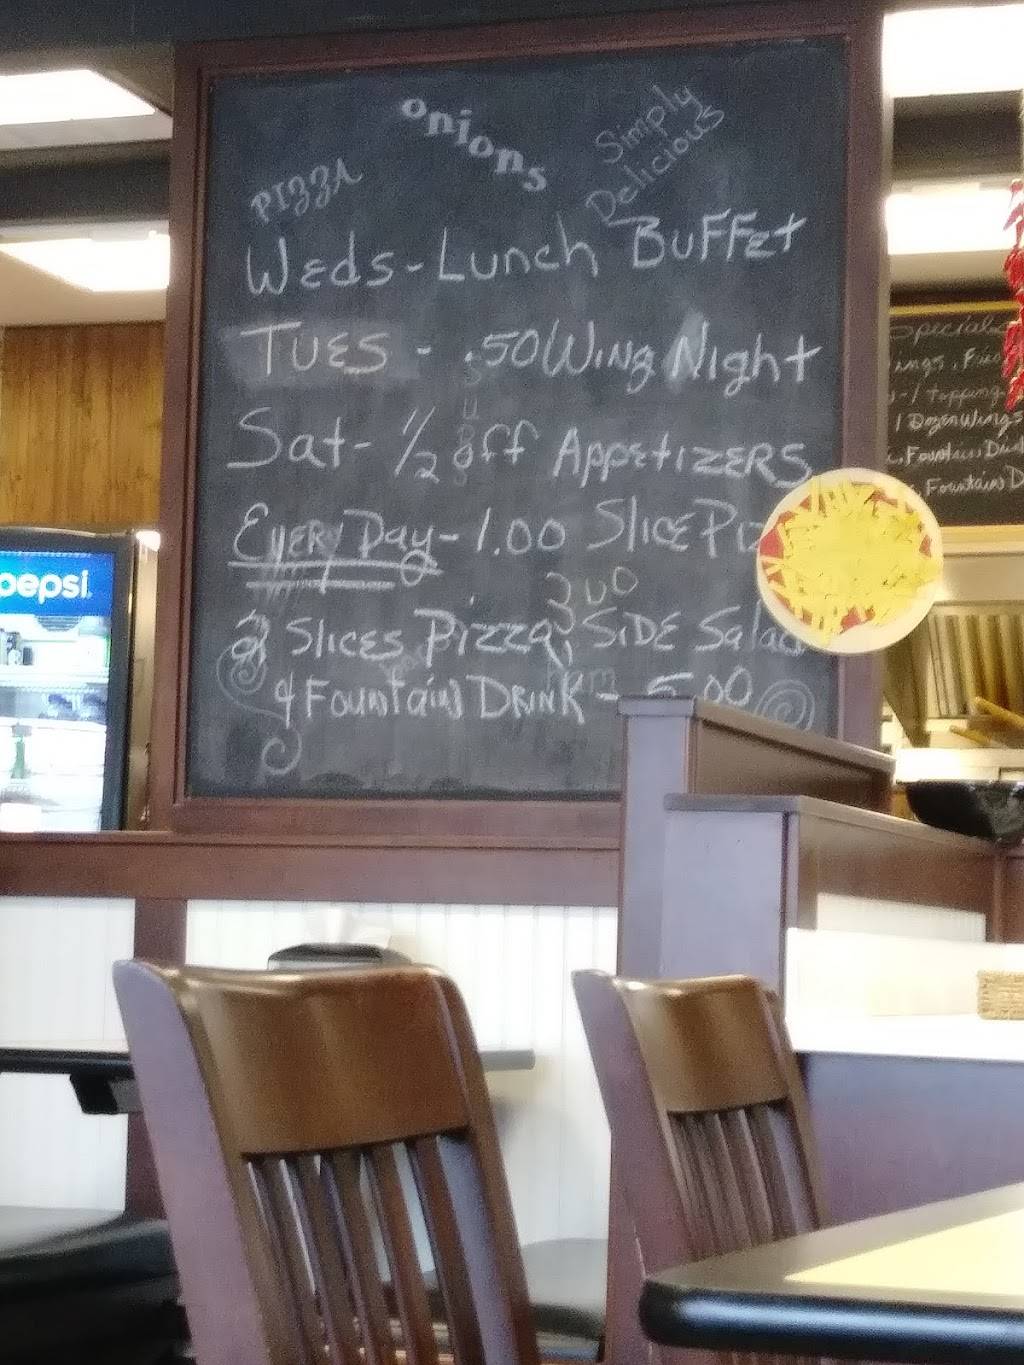 onions
Simply
Delicious
PIZZA
Weds - Lunch Buffet
Tues - .50 Wing Night
Sat - 1/2 off Appetizers
Every Day - 1.00 Slice
2 Slices Pizza, Side Salad
& Fountain Drink - 5.00
pepsi
Specials
1 Dozen Wings
Fountain
Fountain